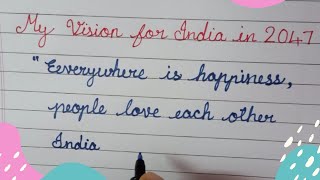 My Vision for India in 2047
"Eeverywhere is happiness,
people love each other
India